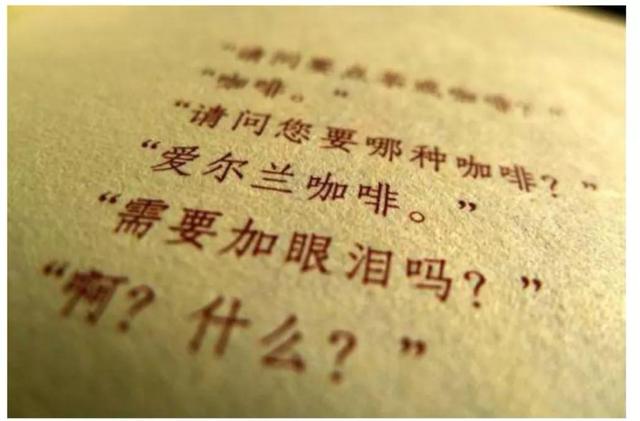 “请问要点茶或咖啡？”
“咖啡。”
“请问您要哪种咖啡？”
“爱尔兰咖啡。”
“需要加眼泪吗？”
“啊？什么？”